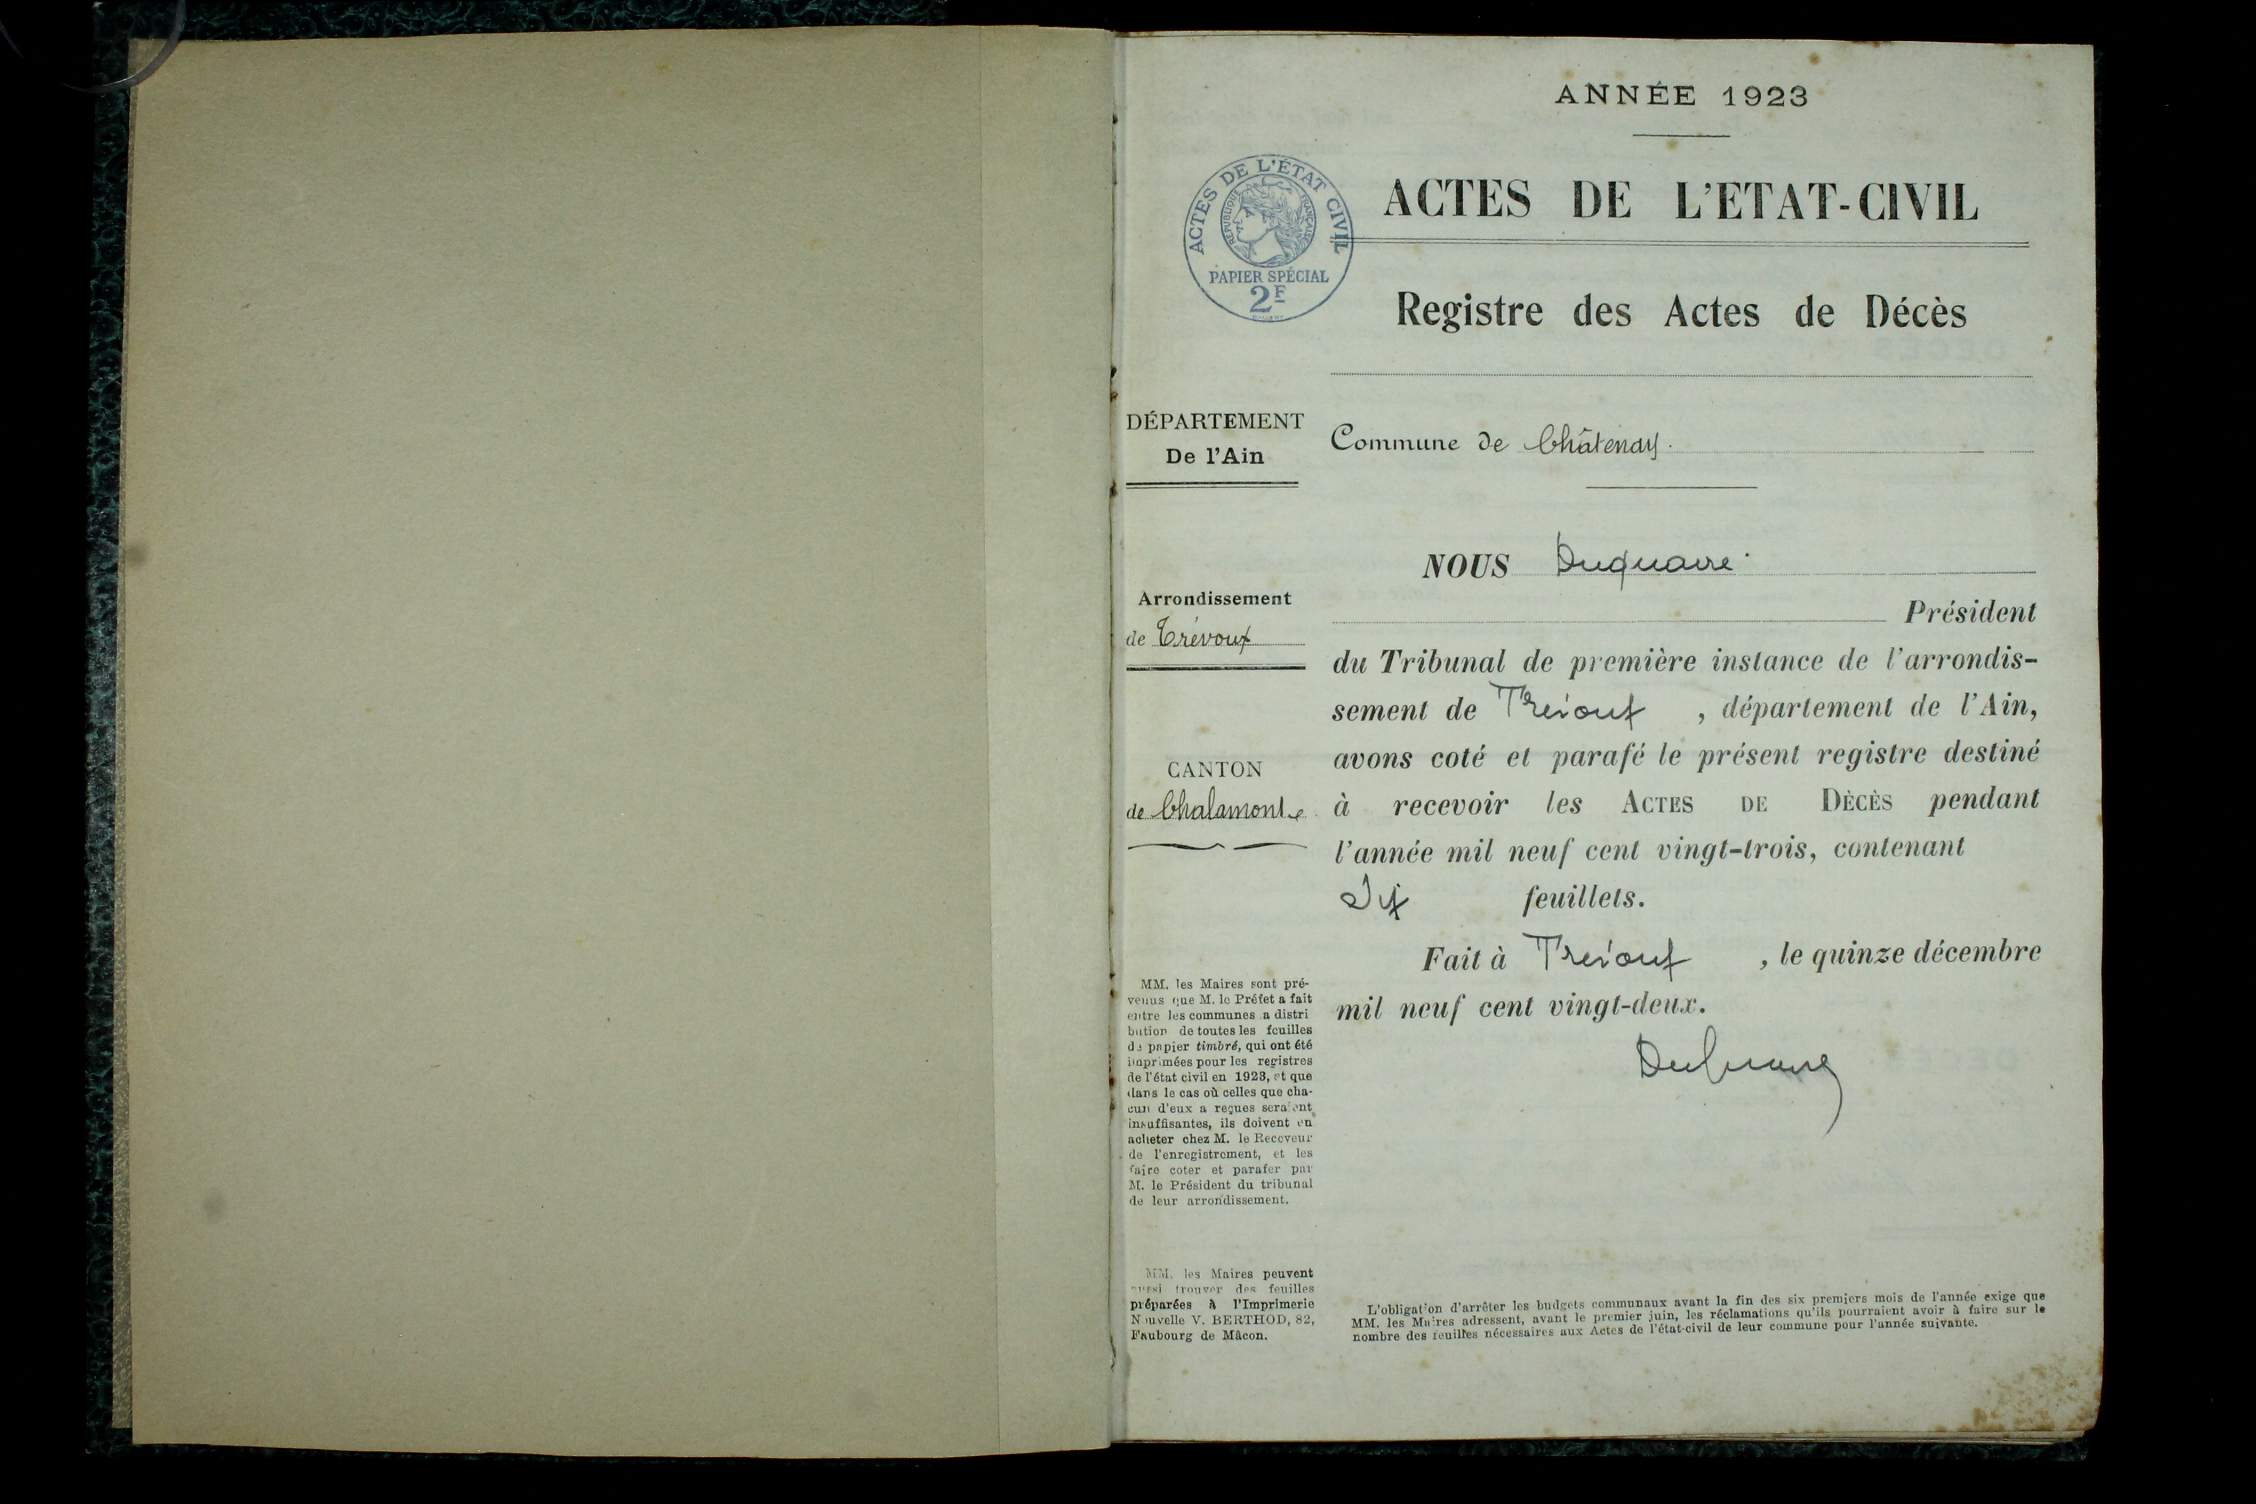 ANNÉE 1923
ACTES DE L'ÉTAT CIVIL
RÉPUBLIQUE FRANÇAISE
PAPIER SPÉCIAL
2F
ACTES DE L'ETAT-CIVIL
Registre des Actes de Décès
DÉPARTEMENT
De l'Ain
Commune de Châtenay.
Arrondissement
de Trévoux
CANTON
de Chalamont
NOUS Duquaire
Président
du Tribunal de première instance de l'arrondis-
sement de Trévoux , département de l'Ain,
avons coté et parafé le présent registre destiné
à recevoir les ACTES DE DÈCÈS pendant
l'année mil neuf cent vingt-trois, contenant
Dix feuillets.
Fait à Trévoux , le quinze décembre
mil neuf cent vingt-deux.
MM. les Maires sont pré-
venus que M. le Préfet a fait
entre les communes a distri
bution de toutes les feuilles
de papier timbré, qui ont été
imprimées pour les registres
de l'état civil en 1923, et que
dans le cas où celles que cha-
cun d'eux a reçues seraient
insuffisantes, ils doivent en
acheter chez M. le Receveur
de l'enregistrement, et les
faire coter et parafer par
M. le Président du tribunal
de leur arrondissement.
MM. les Maires peuvent
aussi trouver des feuilles
préparées à l'Imprimerie
Nouvelle V. BERTHOD, 82,
Faubourg de Mâcon.
L'obligation d'arrêter les budgets communaux avant la fin des six premiers mois de l'année exige que
MM. les Maires adressent, avant le premier juin, les réclamations qu'ils pourraient avoir à faire sur le
nombre des feuilles nécessaires aux Actes de l'état-civil de leur commune pour l'année suivante.